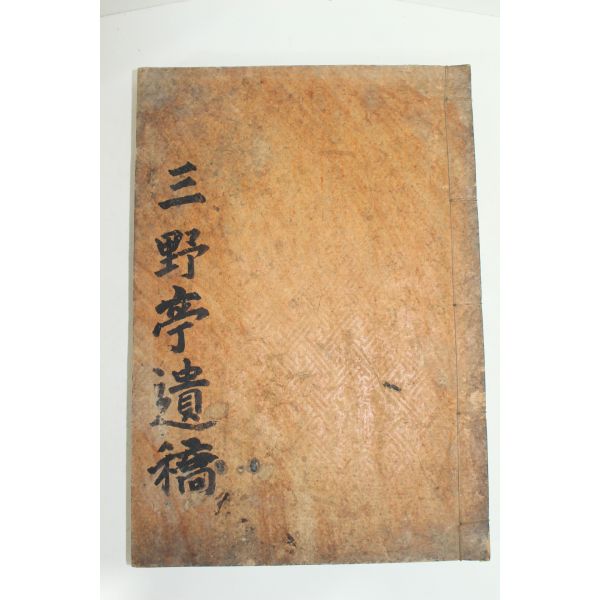 三野亭遺稿